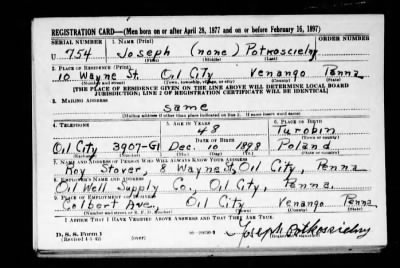 REGISTRATION CARD—(Men born on or after April 28, 1877 and on or before February 16, 1897)
SERIAL NUMBER 1. NAME (Print) ORDER NUMBER
U 754 Joseph (none) Potkoscielny
(First) (Middle) (Last)
2. PLACE OF RESIDENCE (Print)
10 Wayne St. Oil City Venango Penna
(Number and street) (Town, township, village, or city) (County) (State)
[THE PLACE OF RESIDENCE GIVEN ON THE LINE ABOVE WILL DETERMINE LOCAL BOARD
JURISDICTION; LINE 2 OF REGISTRATION CERTIFICATE WILL BE IDENTICAL]
3. MAILING ADDRESS
same
[Mailing address if other than place indicated on line 2. If same insert word same]
4. TELEPHONE 5. AGE IN YEARS 6. PLACE OF BIRTH
48 Turobin
DATE OF BIRTH (Town or county)
Oil City 3907-G1 Dec. 10 1893 Poland
(Exchange) (Number) (Mo.) (Day) (Yr.) (State or country)
7. NAME AND ADDRESS OF PERSON WHO WILL ALWAYS KNOW YOUR ADDRESS
Roy Stover, 8 Wayne St, Oil City, Penna
8. EMPLOYER'S NAME AND ADDRESS
Oil Well Supply Co., Oil City, Penna.
9. PLACE OF EMPLOYMENT OR BUSINESS
Colbert Ave., Oil City Venango Penna
(Number and street or R. F. D. number) (Town) (County) (State)
I AFFIRM THAT I HAVE VERIFIED ABOVE ANSWERS AND THAT THEY ARE TRUE.
D. S. S. Form 1
(Revised 4-1-42) (over) Joseph Potkossielny